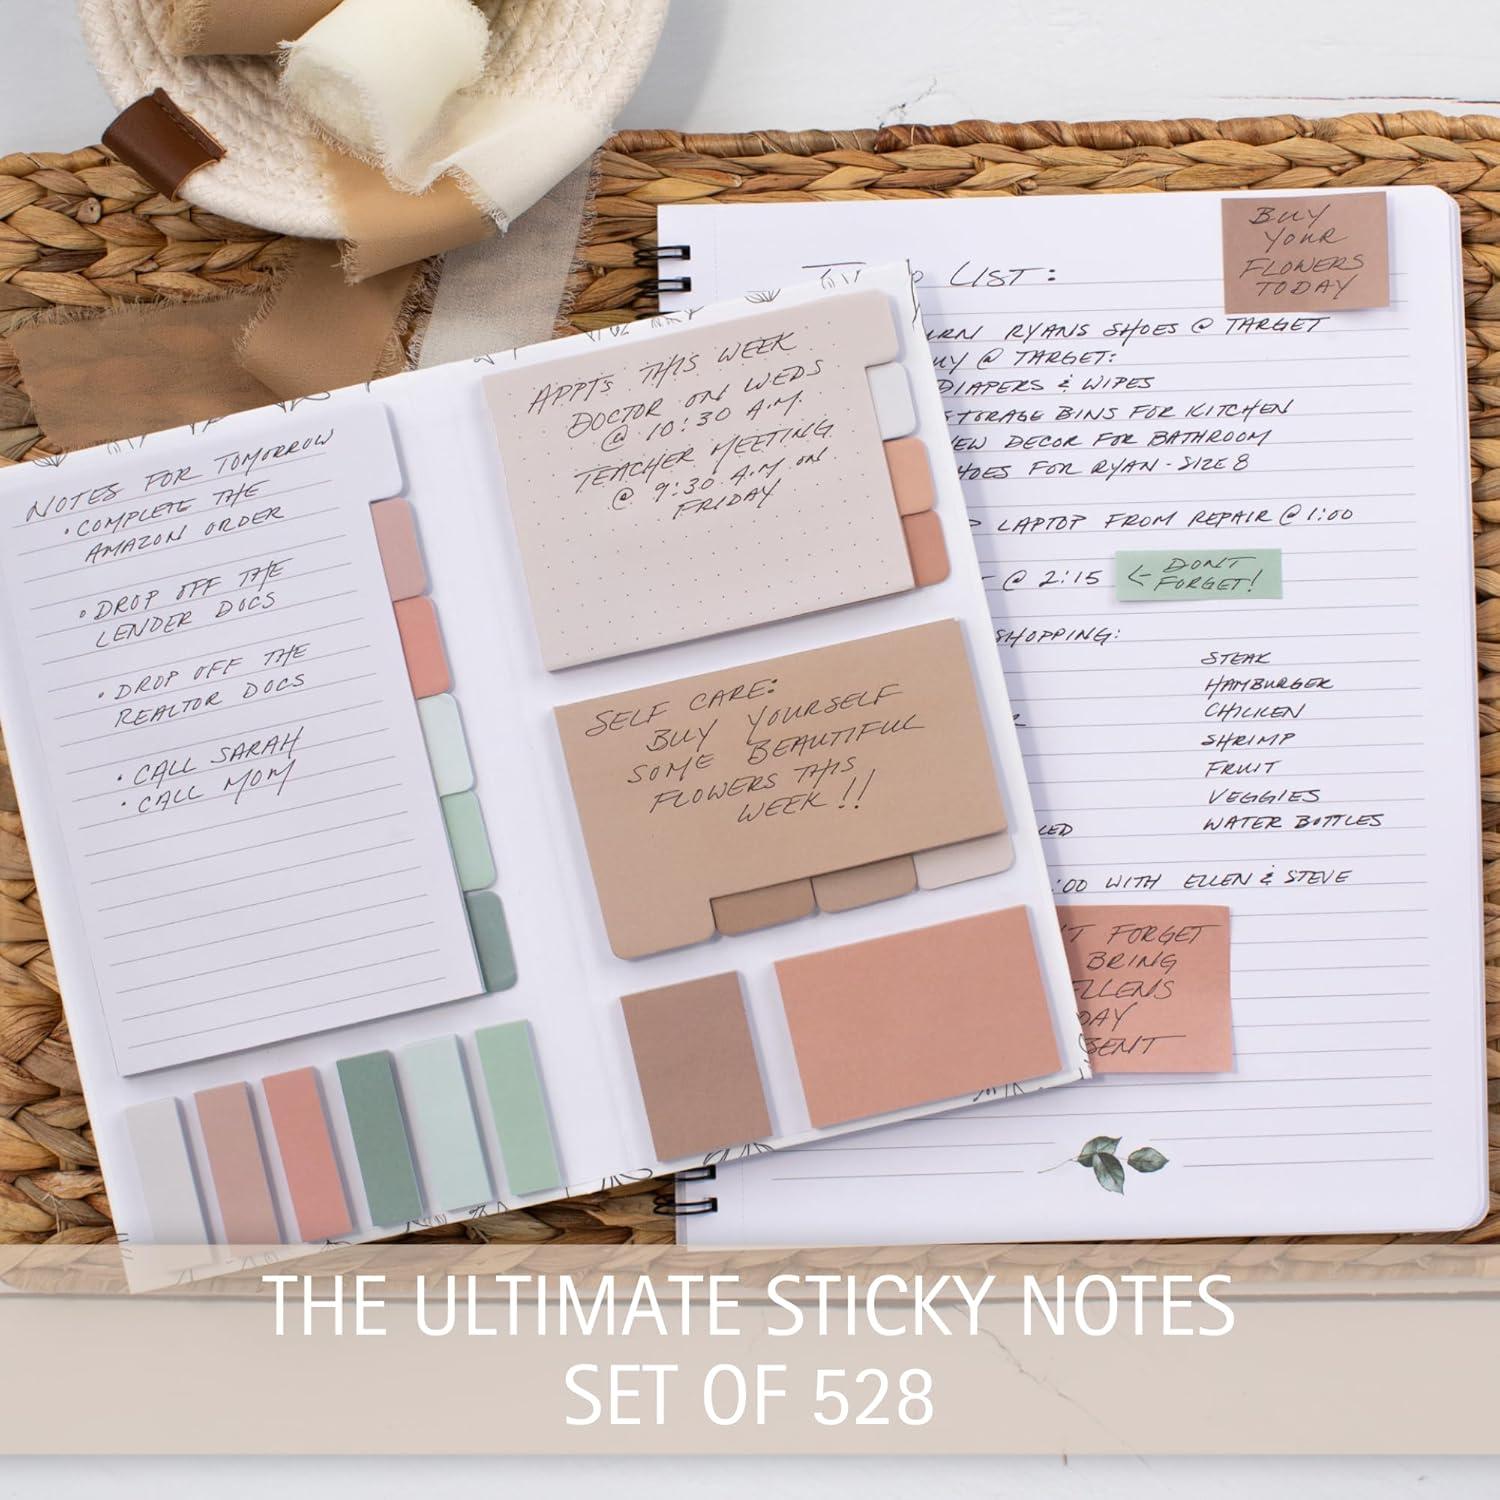 NOTES FOR TOMORROW
• COMPLETE THE
AMAZON ORDER
• DROP OFF THE
LENDER DOCS
• DROP OFF THE
REALTOR DOCS
• CALL SARAH
• CALL MOM
APPTS THIS WEEK
DOCTOR ON WEDS
@ 10:30 A.M.
TEACHER MEETING
@ 9:30 A.M ON
FRIDAY
SELF CARE:
BUY YOURSELF
SOME BEAUTIFUL
FLOWERS THIS
WEEK!!
LIST:
BUY
YOUR
FLOWERS
TODAY
RYANS SHOES @ TARGET
@ TARGET:
DIAPERS & WIPES
STORAGE BINS FOR KITCHEN
DECOR FOR BATHROOM
FOR RYAN - SIZE 8
LAPTOP FROM REPAIR @ 1:00
@ 2:15
← DONT
FORGET!
SHOPPING:
STEAK
HAMBURGER
CHICKEN
SHRIMP
FRUIT
VEGGIES
WATER BOTTLES
:00 WITH ELLEN & STEVE
FORGET
BRING
THE ULTIMATE STICKY NOTES
SET OF 528